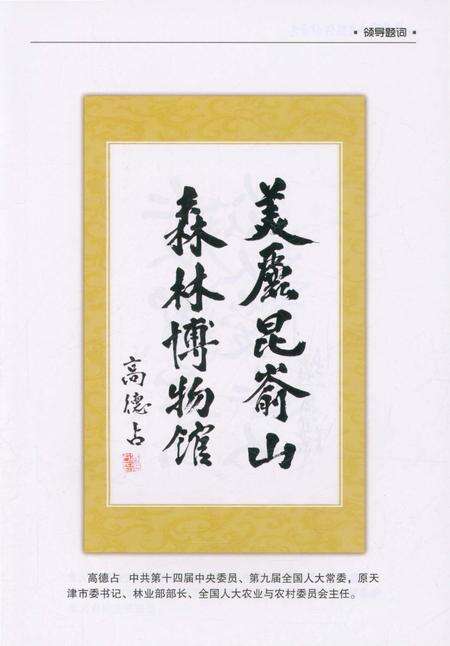 ▪领导题词▪
美麗昆嵛山
森林博物馆
高德占
高德占 中共第十四届中央委员、第九届全国人大常委，原天
津市委书记、林业部部长、全国人大农业与农村委员会主任。